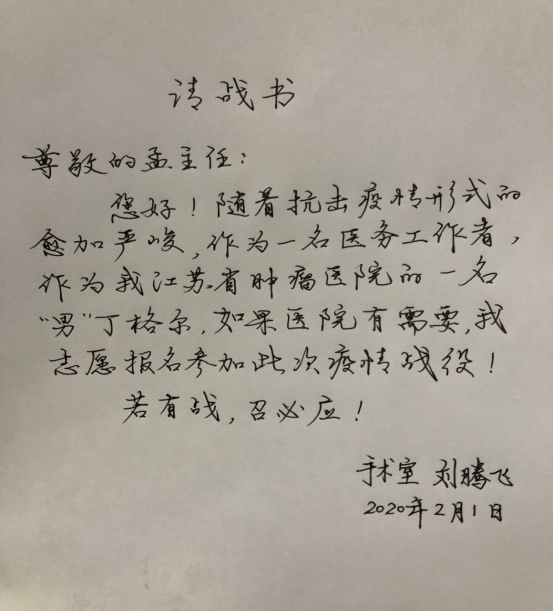 请战书
尊敬的孟主任:
您好!随着抗击疫情形式的
愈加严峻,作为一名医务工作者,
作为我江苏省肿瘤医院的一名
“男”丁格尔,如果医院有需要,我
志愿报名参加此次疫情战役!
若有战,召必应!
手术室 刘腾飞
2020年2月1日